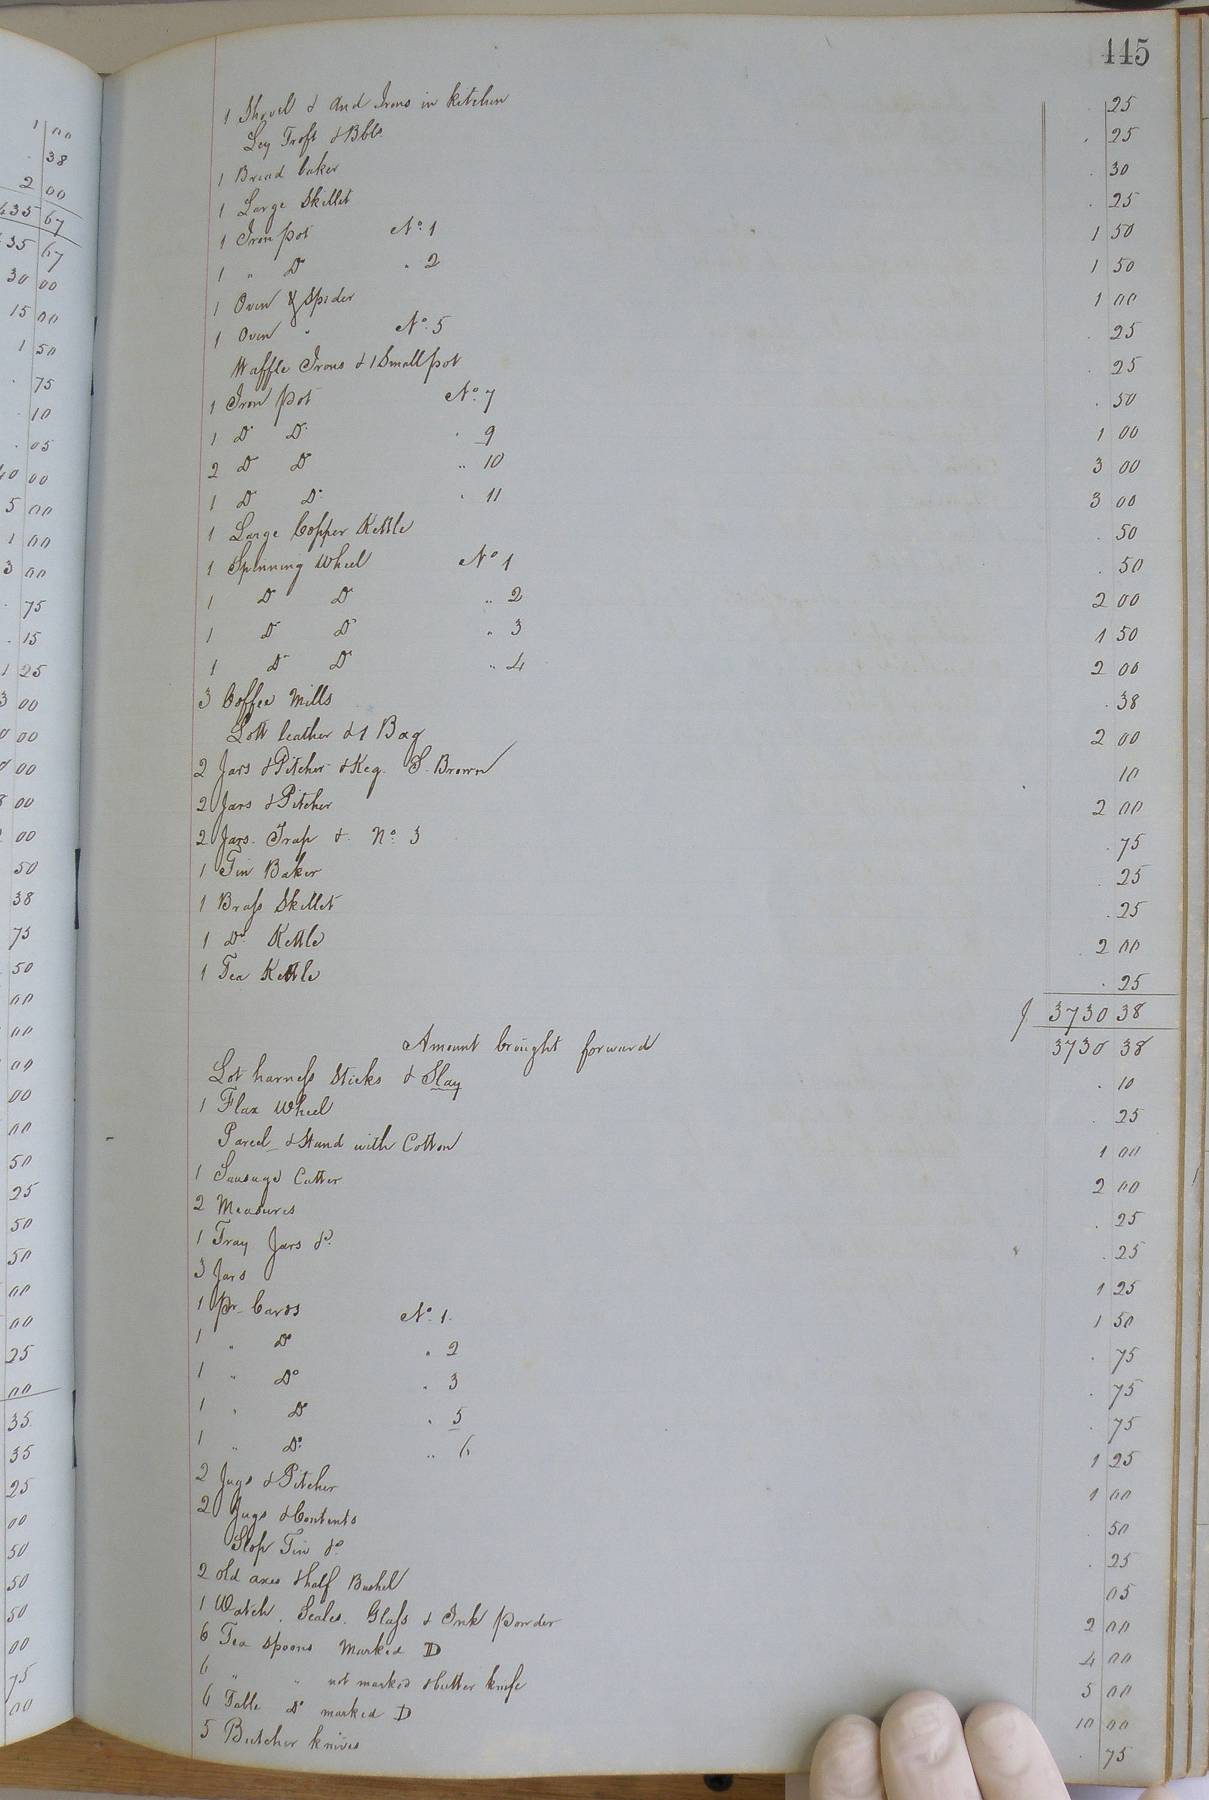 1 00
. 38
2 00
435 67
435 67
30 00
15 00
1 50
. 75
. 10
. 05
40 00
5 00
1 00
3 00
. 75
. 15
1 25
3 00
00
00
00
00
50
38
75
50
00
00
00
00
00
50
25
50
50
00
00
25
00
35
35
25
00
50
50
50
00
75
00
445
1 Shovel & And Irons in kitchen . 25
Ley Troft & Bbls . 25
1 Bread baker . 30
1 Large Skillet . 25
1 Iron pot No. 1 1 50
1 " Do " 2 1 50
1 Oven & Spider 1 00
1 Oven " No. 5 . 25
Waffle Irons & 1 Small pot . 25
1 Iron pot No. 7 . 50
1 Do Do " 9 1 00
2 Do Do " 10 3 00
1 Do Do " 11 3 00
1 Large Copper Kettle . 50
1 Spinning Wheel No 1 . 50
1 Do Do " 2 2 00
1 Do Do " 3 1 50
1 Do Do " 4 2 00
3 Coffee Mills . 38
Lott leather & 1 Bag 2 00
2 Jars & Pitcher & Keg. S. Brown 10
2 Jars & Pitcher 2 00
2 Jars. Trap & No. 3 . 75
1 Tin Baker . 25
1 Brass Skillet . 25
1 Do Kettle 2 00
1 Tea Kettle . 25
3730 38
Amount brought forward 3730 38
Lot harness Sticks & Slay . 10
1 Flax Wheel . 25
Parcel & Stand with Cotton 1 00
1 Sausage Cutter 2 00
2 Measures . 25
1 Tray Jars &c . 25
3 Jars 1 25
1 Pr Cards No. 1. 1 50
1 " Do " 2 . 75
1 " Do " 3 . 75
1 " Do " 5 . 75
1 " Do " 6 1 25
2 Jugs & Pitcher 1 00
2 Jugs & Contents . 50
Slop Tin &c . 25
2 old axes & half Bushel 05
1 Watch. Scales. Glass & Ink Powder 2 00
6 Tea Spoons Marked D 4 00
6 " " not marked & butter knife 5 00
6 Table Do marked D 10 00
5 Butcher knives . 75